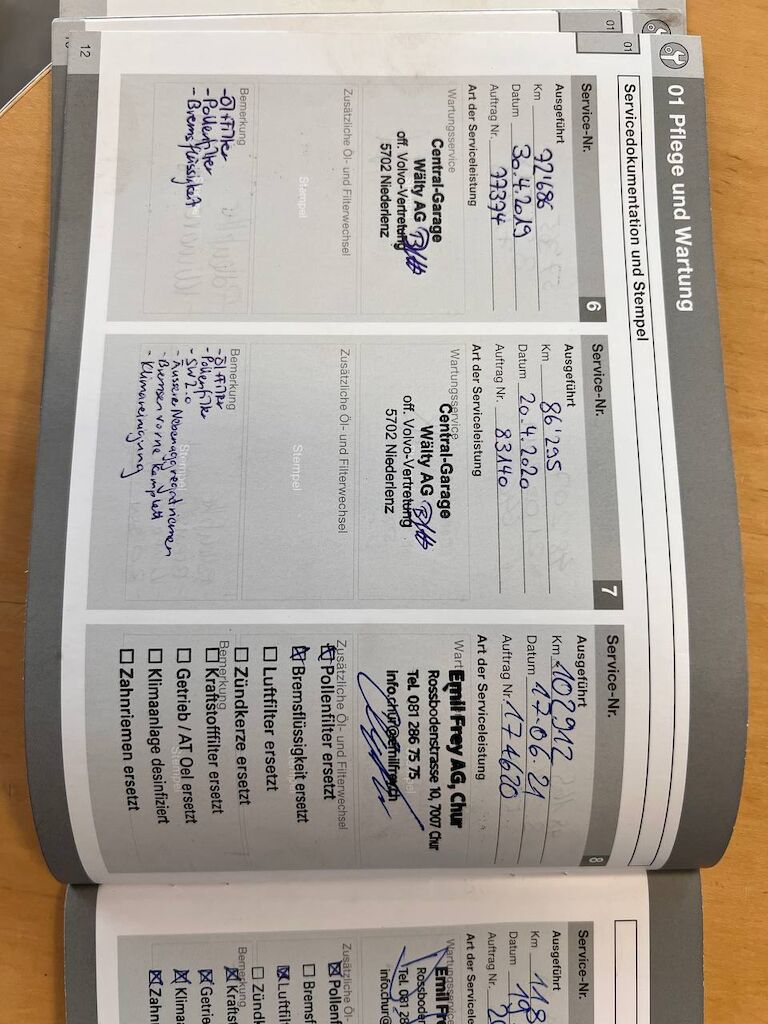 01 Pflege und Wartung
Servicedokumentation und Stempel
01
01
12
Service-Nr.
6
Ausgeführt
Km 72'686
Datum 30.4.2019
Auftrag Nr. 77374
Art der Serviceleistung
Wartungsservice
Central-Garage
Wälty AG
off. Volvo-Vertretung
5702 Niederlenz
Zusätzliche Öl- und Filterwechsel
Stempel
Bemerkung
- Öl+Filter
- Pollenfilter
- Bremsflüssigkeit
Service-Nr.
7
Ausgeführt
Km 86'295
Datum 20.4.2020
Auftrag Nr. 83140
Art der Serviceleistung
Wartungsservice
Central-Garage
Wälty AG
off. Volvo-Vertretung
5702 Niederlenz
Zusätzliche Öl- und Filterwechsel
Stempel
Bemerkung
- Öl Filter
- Pollenfilter
- SW 2.0
- Äussere Nebenaggregatriemen
- Bremsen vorne komplett
- Klimareinigung
Stempel
Service-Nr.
8
Ausgeführt
Km 102912
Datum 17.06.21
Auftrag Nr. 174620
Art der Serviceleistung
Wart
Emil Frey AG, Chur
Rossbodenstrasse 10, 7007 Chur
Tel. 081 286 75 75
info.chur@emilfrey.ch
Zusätzliche Öl- und Filterwechsel
☒ Pollenfilter ersetzt
☒ Bremsflüssigkeit ersetzt
Stempel
☐ Luftfilter ersetzt
☐ Zündkerze ersetzt
Bemerkung
☐ Kraftstofffilter ersetzt
☐ Getrieb / AT Oel ersetzt
☐ Klimaanlage desinfiziert
☐ Zahnriemen ersetzt
Service-Nr.
Ausgeführt
Km 118
Datum 19
Auftrag Nr. 20
Art der Serviceleist
Wartungsservice
Emil Fr
Rossboden
Tel. 081 28
info.chur@
Zusätzliche Öl- u
☒ Pollen
☐ Bremsf
☒ Luftfilt
☐ Zündk
Bemerkung
☒ Krafts
☒ Getrie
☒ Klima
☒ Zahn